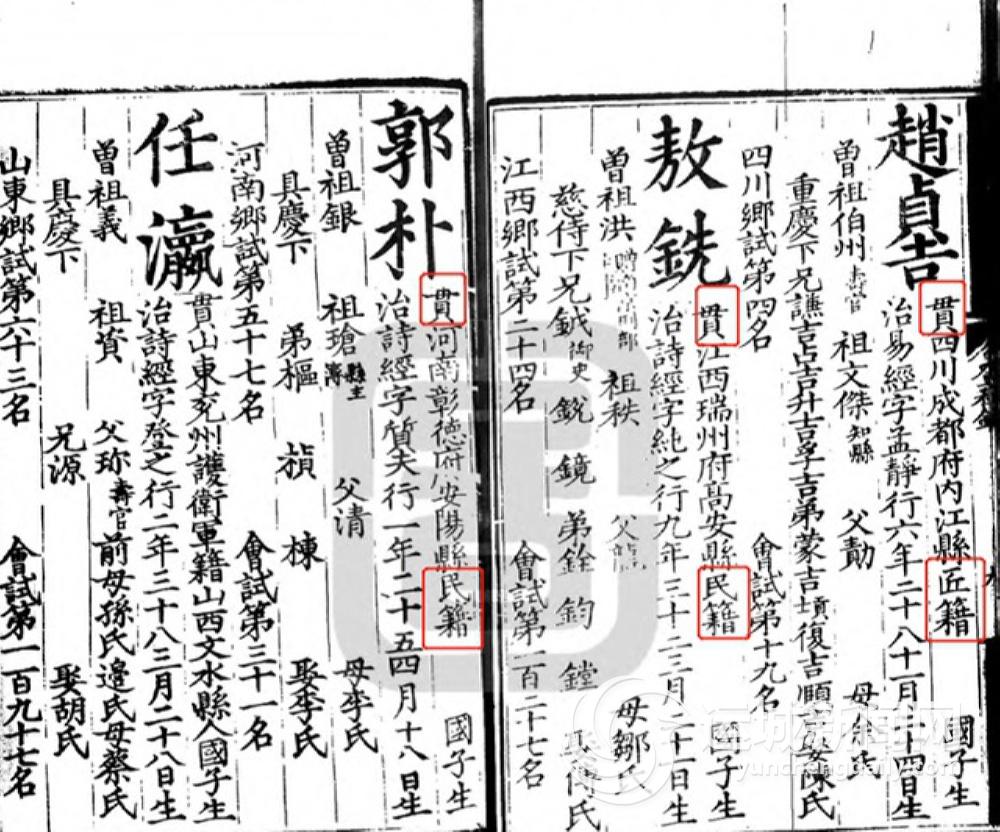 趙貞吉
貫四川成都府内江縣匠籍
國子生
治易經字孟靜行六年二十八十一月二十四日生
曾祖伯州壽官
祖文傑知縣
父勣
母余氏
重慶下兄謙吉占吉升吉喜吉孚吉弟蒙吉墳復吉頤吉娶陳氏
四川鄉試第四名
會試第十九名
敖銑
貫江西瑞州府高安縣民籍
國子生
治詩經字純之行九年三十二三月二十一日生
曾祖洪
祖秩
父
母鄒氏
慈侍下兄鉞御史銳鏡弟銓鈞鏜
江西鄉試第二十四名
會試第一百二十七名
郭朴
貫河南彰德府安陽縣民籍
國子生
治詩經字質夫行一年二十五四月十八日生
曾祖銀
祖瑲縣主簿
父清
母李氏
具慶下
弟樞
楨
棟
娶李氏
河南鄉試第五十七名
會試第三十一名
任瀛
貫山東兗州護衛軍籍山西文水縣人國子生
治詩經字登之行二年三十八三月二十八日生
曾祖義
祖資
父珎壽官前母孫氏邊氏母蔡氏
具慶下
兄源
娶胡氏
山東鄉試第六十三名
會試第一百九十七名
运城新闻网
yunchengdaily.com